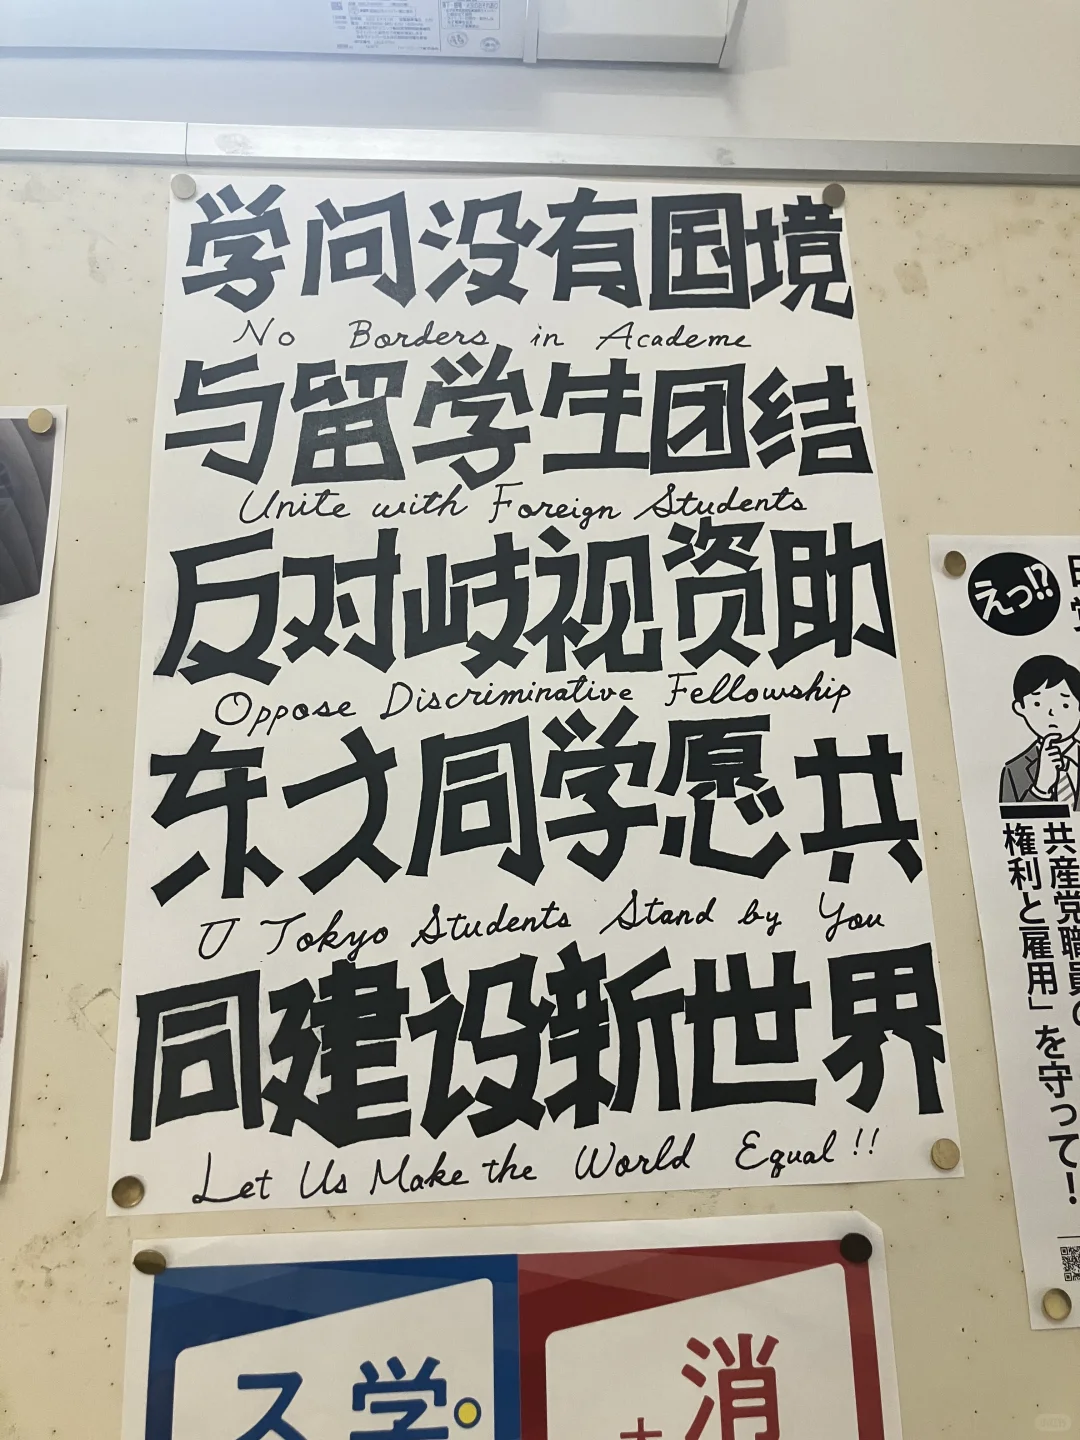 学问没有国境
No Borders in Academe
与留学生团结
Unite with Foreign Students
反对歧视资助
Oppose Discriminative Fellowship
东大同学愿共
U Tokyo Students Stand by You
同建设新世界
Let Us Make the World Equal!!
えっ!?
共産党職員の
権利と雇用」を守って!
ス学
消